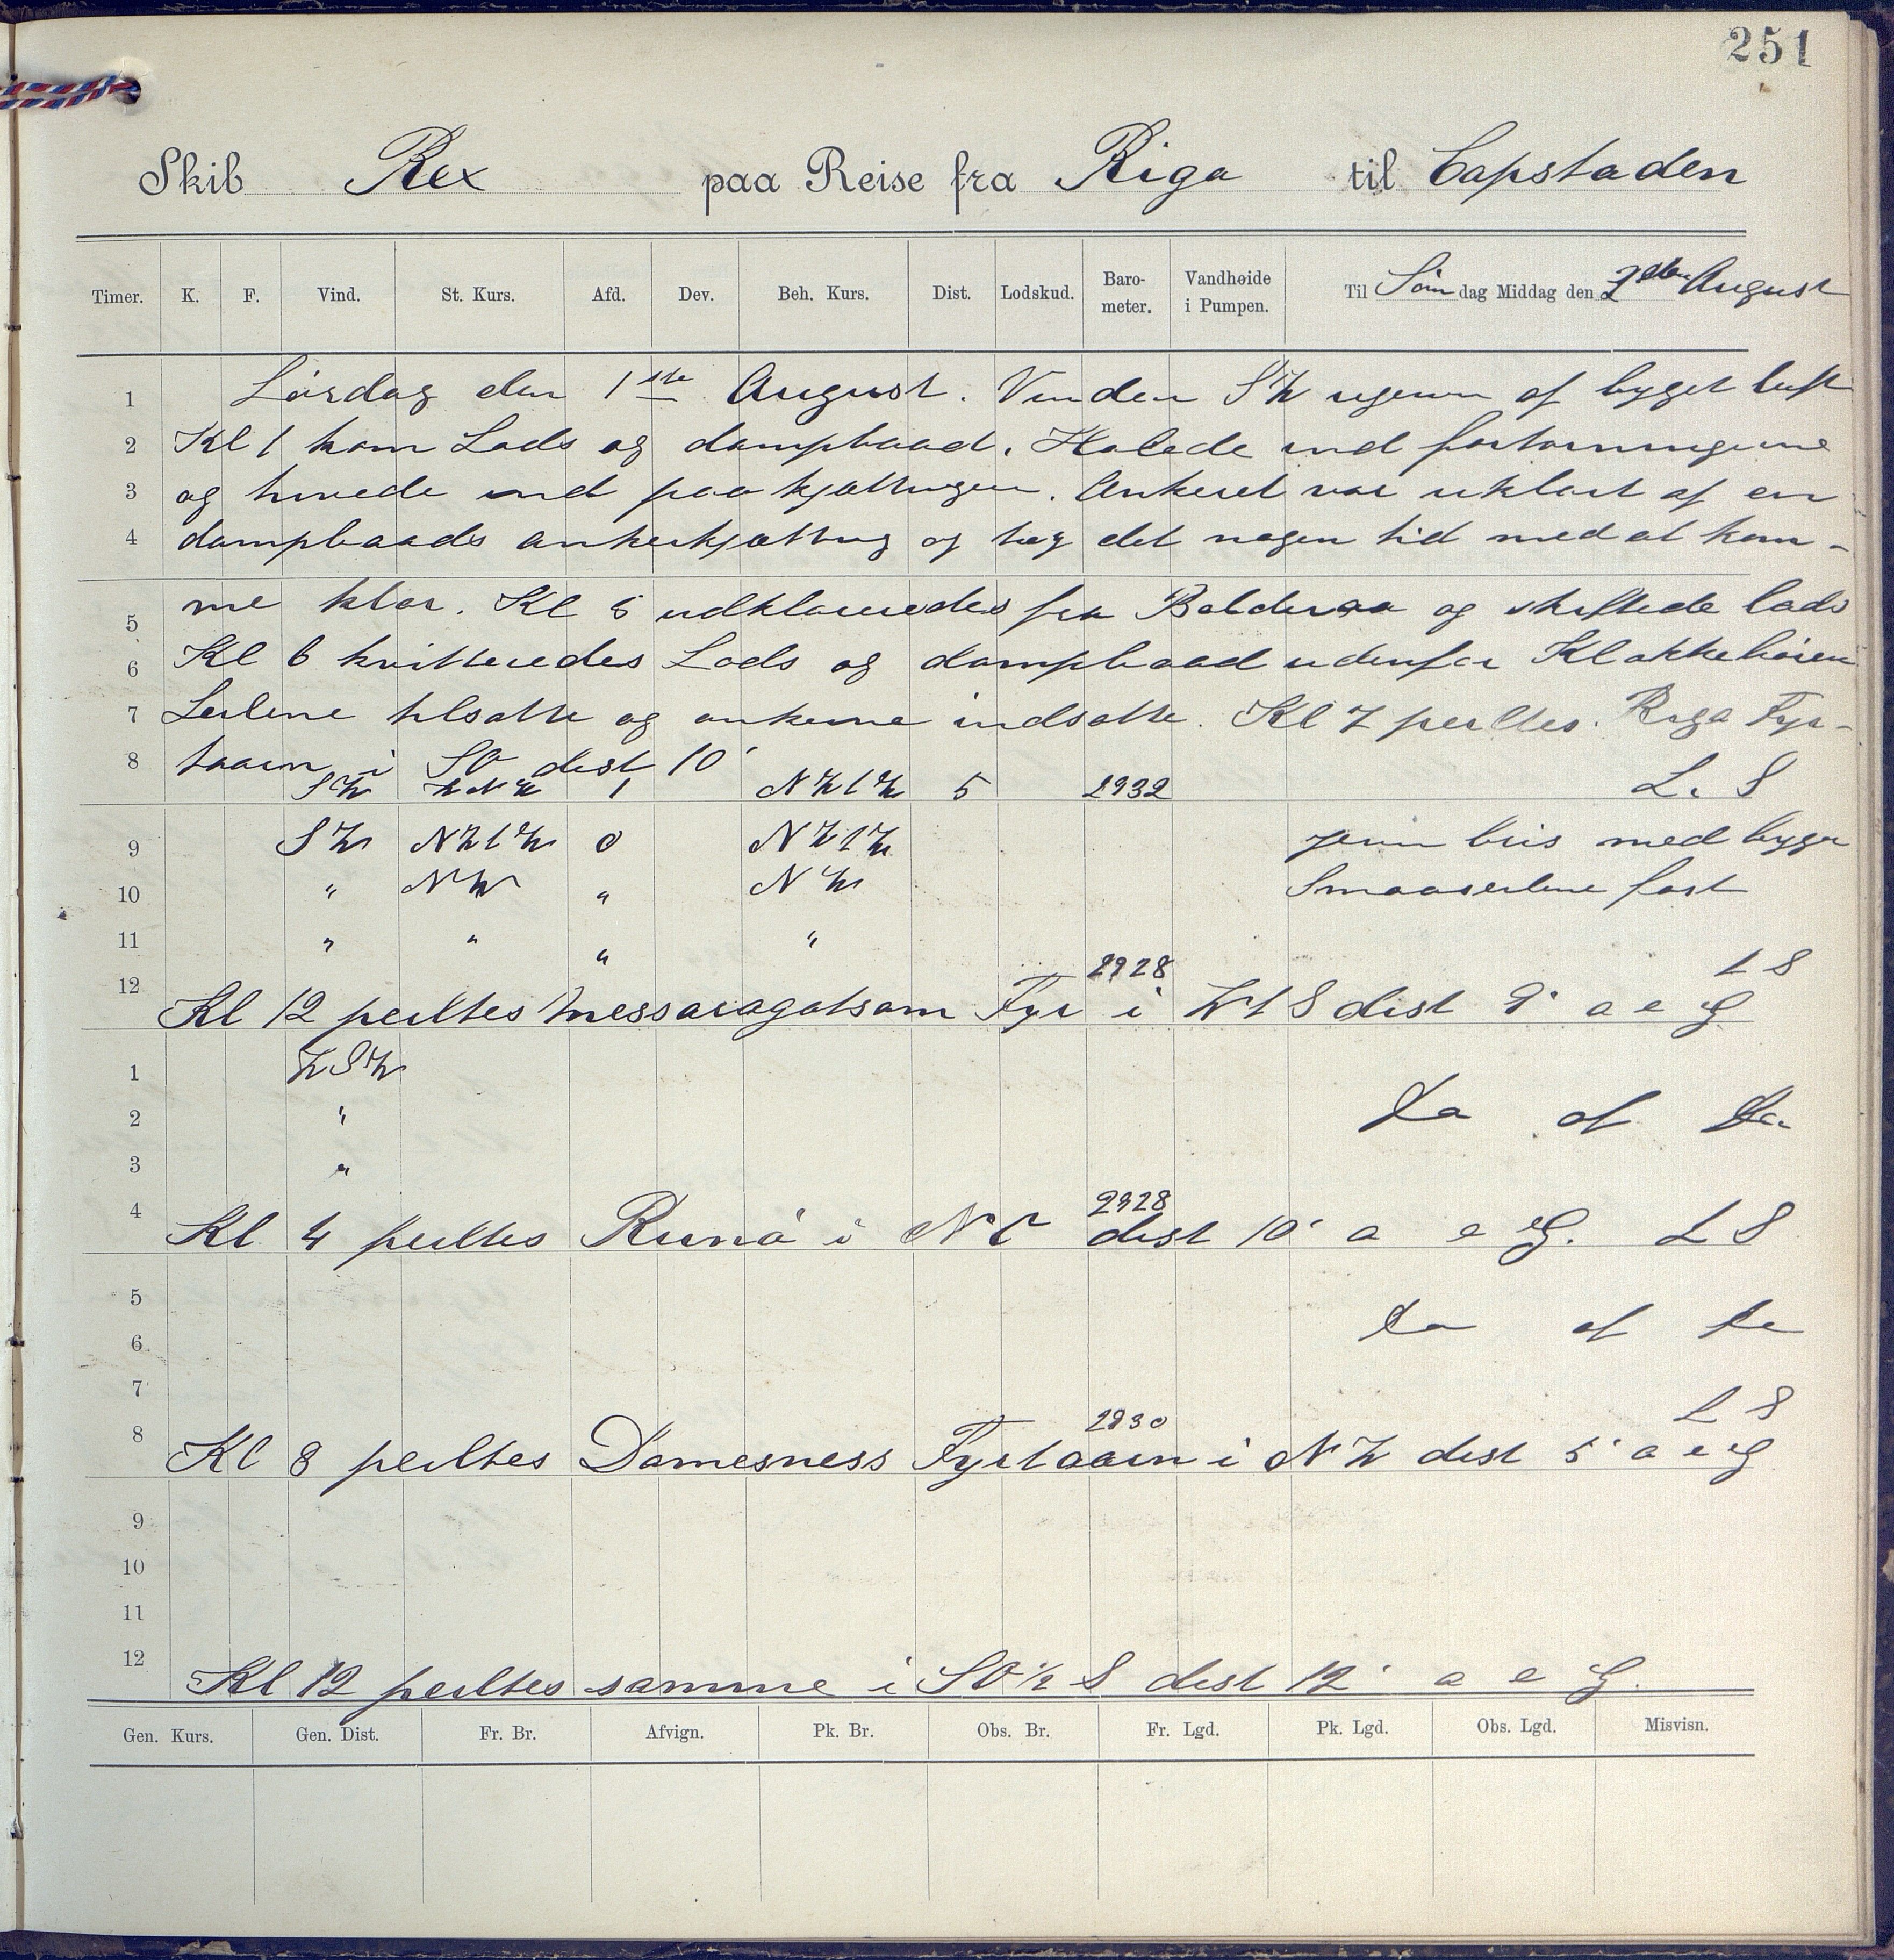 251
Skib Rex paa Reise fra Riga til Capstaden
Timer. K. F. Vind. St. Kurs. Afd. Dev. Beh. Kurs. Dist. Lodskud. Baro-meter. Vandhøide i Pumpen. Til Søndag Middag den 2den August
1 Lørdag den 1ste August. Vinden SW af byget luft
2 Kl 1 kom Lods og dampbaad. Halede ind fortøiningerne
3 og hivede ind paa kjættingen. Ankeret var uklart af en
4 dampbaads ankerkjætting og tog det nogen tid med at kom-
5 me klar. Kl 5 udklareredes fra Bolderaa og skiftede lods
6 Kl 6 kvitteredes Lods og dampbaad udenfor Klokkebøien
7 Seilene tilsatte og ankerne indsatte. Kl 7 peiltes Riga Fyr-
8 taarn i SO dist 10'
SW WNW 1 NW t W 5 2932 L. S
9 SW NW t W 0 NW t W jevn bris med byger
10 " NW " NW Smaaseilene fast
11 " " " "
2928 L S
12 Kl 12 peiltes Messaragotsom Fyr i W t S dist 9' a e G
1 WSW
2 " Da of Da
3 "
2928
4 Kl 4 peiltes Runø i NO dist 10' a e G. L S
5
6 Da of Da
7
2930 L S
8 Kl 8 peiltes Domesness Fyrtaarn i NW dist 5' a e G
9
10
11
12 Kl 12 peiltes samme i SO 1/2 S dist 12' a e G.
Gen. Kurs. Gen. Dist. Fr. Br. Afvign. Pk. Br. Obs. Br. Fr. Lgd. Pk. Lgd. Obs. Lgd. Misvisn.